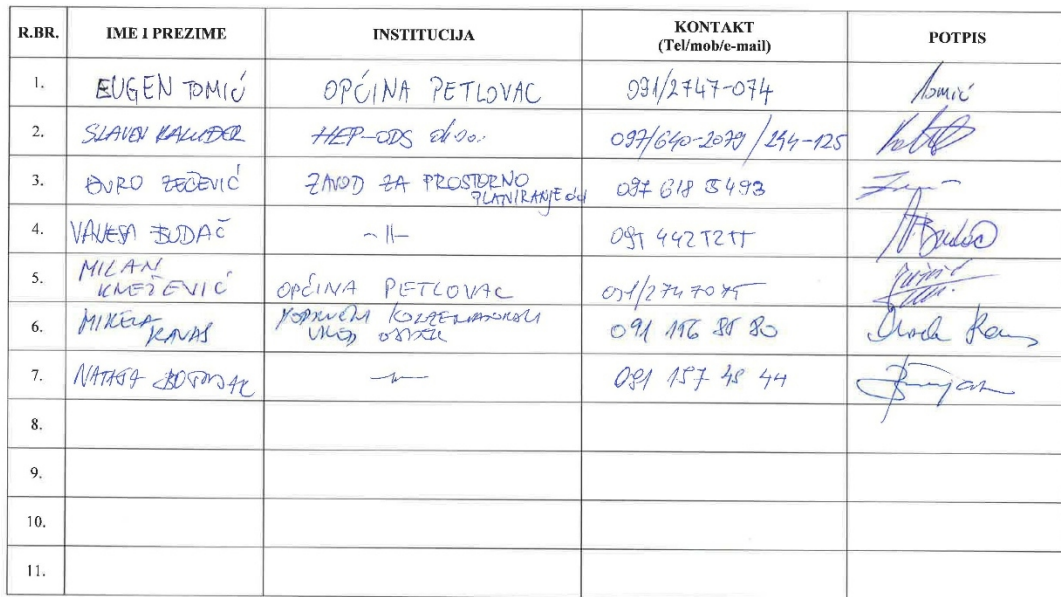 R.BR. IME I PREZIME INSTITUCIJA KONTAKT (Tel/mob/e-mail) POTPIS
1. EUGEN TOMIĆ OPĆINA PETLOVAC 091/2747-074 Tomić
2. SLAVEN KALUĐER HEP-ODS d.o.o. 097/640-2079 /244-125
3. ĐURO ZEČEVIĆ ZAVOD ZA PROSTORNO
PLANIRANJE
097 618 5493
4. VANESA BUDAČ -||- Budač
5. MILAN
KNEŽEVIĆ OPĆINA PETLOVAC 091/2747075
6. OSIJEK 091 156 85 80
7. NATAŠA 091 157 48 44
8.
9.
10.
11.